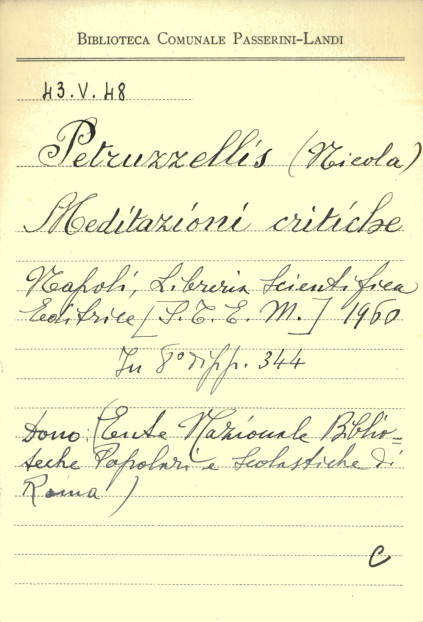 BIBLIOTECA COMUNALE PASSERINI-LANDI
43.V.48
Petruzzellis (Nicola)
Meditazioni critiche
Napoli, Libreria Scientifica
Editrice [S.T.E.M.] 1960
In 8° di pp. 344
Dono: (Ente Nazionale Biblio=
teche Popolari e Scolastiche di
Roma)
C